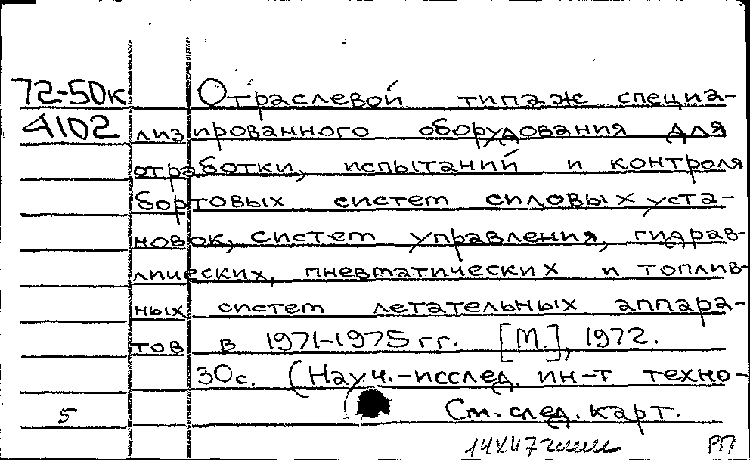 72-50к Отраслевой типаж специа-
4102 лизированного оборудования для
отработки, испытаний и контроля
бортовых систем силовых уста-
новок, систем управления, гидрав-
лических, пневматических и топлив-
ных систем летательных аппара-
тов в 1971-1975 гг. [М.], 1972.
30с. (Науч.-исслед. ин-т техно-
5 См. след. карт.
РП